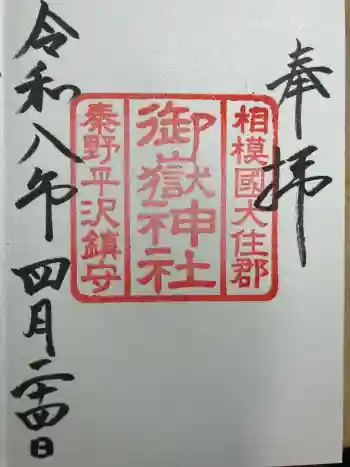 奉拝
相模國大住郡
御嶽神社
秦野平沢鎮守
令和八年四月二十四日